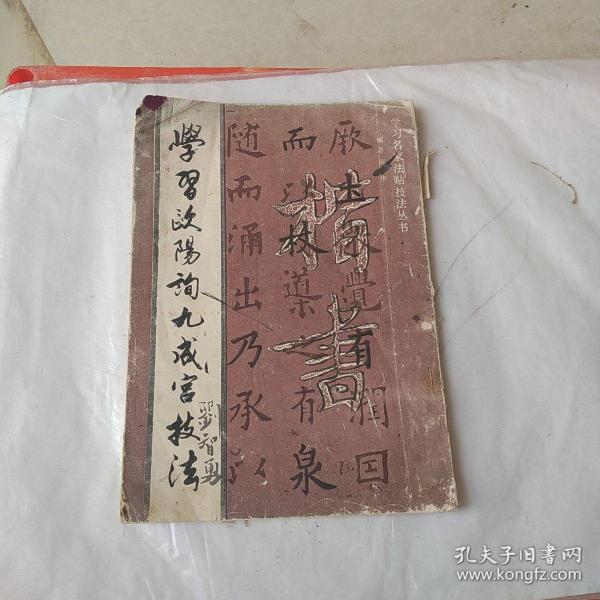 學習欧陽詢九成宮技法
劉智勇
学习名家法贴技法丛书
编著
楷書
厥土覺有润
而以杖導之有泉
随而涌出乃承以
孔夫子旧书网
www.kongfz.com